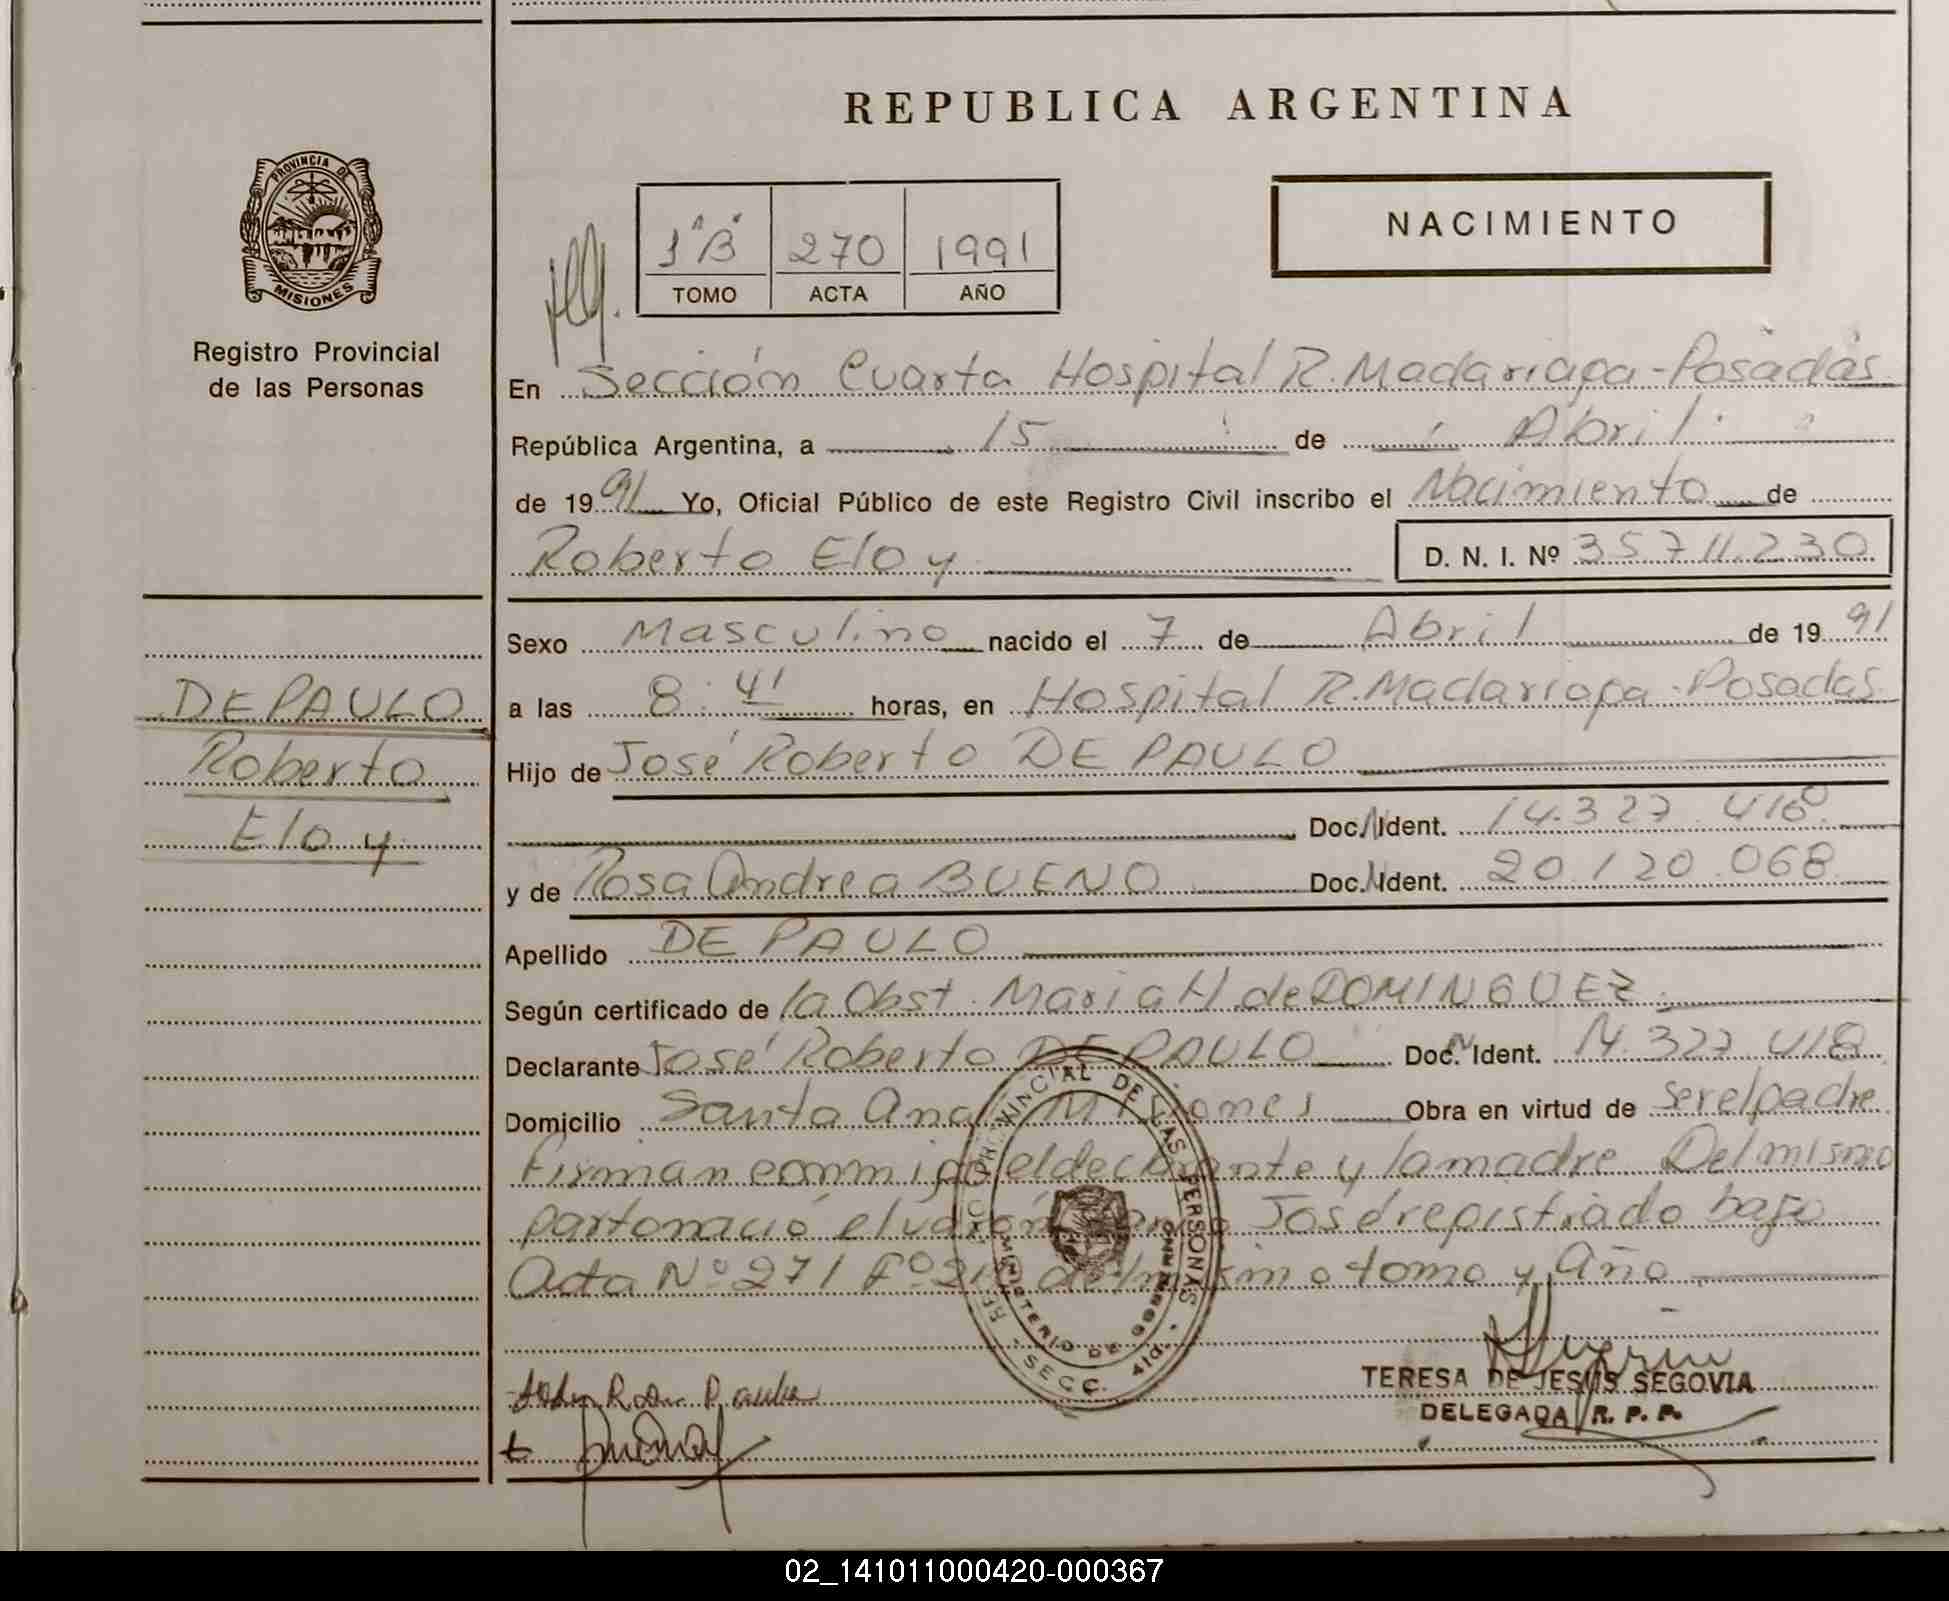 REPUBLICA ARGENTINA
PROVINCIA DE
MISIONES
Registro Provincial
de las Personas
1ª "B" 270 1991
TOMO ACTA AÑO
NACIMIENTO
En Sección Cuarta Hospital R. Madariaga - Posadas
República Argentina, a 15 de Abril
de 1991 Yo, Oficial Público de este Registro Civil inscribo el Nacimiento de
Roberto Eloy D. N. I. Nº 35711.230
Sexo Masculino nacido el 7 de Abril de 1991
a las 8:41 horas, en Hospital R. Madariaga - Posadas
Hijo de José Roberto DE PAULO
Doc. N Ident. 14.327.418
y de Rosa Andrea BUENO Doc. N Ident. 20.120.068
Apellido DE PAULO
Según certificado de la Obst. Maria H de DOMINGUEZ
Declarante José Roberto DE PAULO Doc. N Ident. 14.327.418
Domicilio Santa Ana Misiones Obra en virtud de ser el padre
Firman conmigo el declarante y la madre Del mismo
parto nació el varón José registrado bajo
Acta Nº 271 Fº del mismo tomo y Año
DE PAULO
Roberto
Eloy
REG. PROVINCIAL DE LAS PERSONAS
MINISTERIO DE GOBIERNO
SECC. 4ta.
TERESA DE JESUS SEGOVIA
DELEGADA R. P. P.
02_141011000420-000367